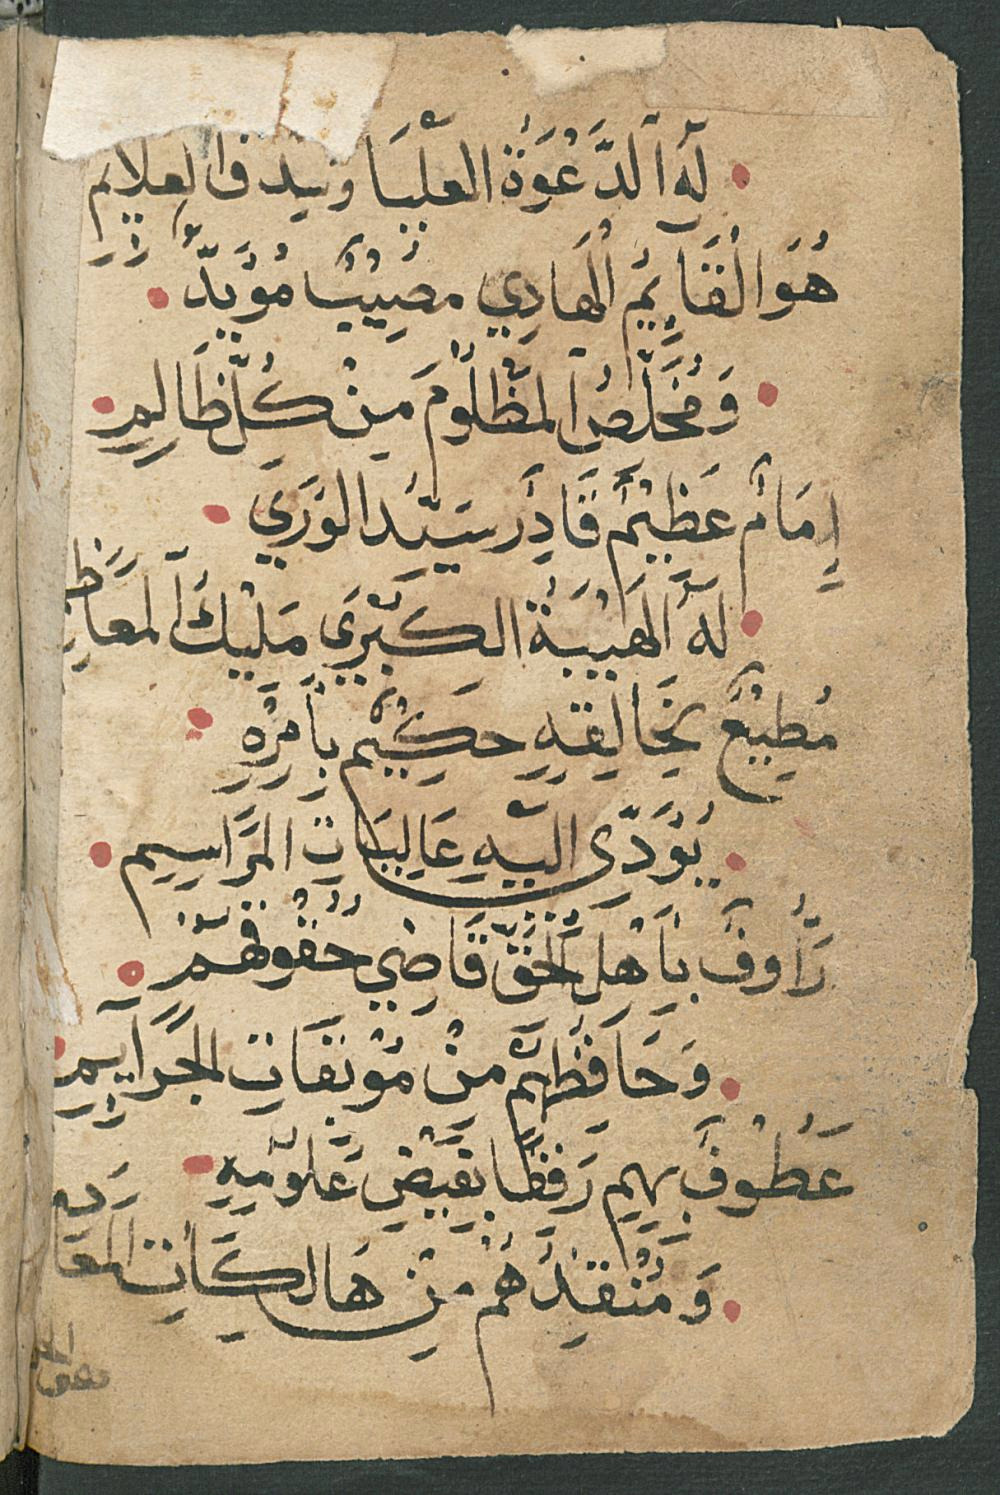 لَهُ الدَّعْوَةُ العُلْيَا وسِدق العلايم
هُوَ الْقَايِمُ الْهَادِي مصِيْبٌ مُؤَيَّدٌ
وَمُخَلِّصُ الْمَظْلُومَ مِنْ كُلِّ ظَالِمِ
إِمَامٌ عَظِيْمٌ قَادِر سَيِّدُ الوَرَي
لَهُ الهَيْبَةُ الكُبْرَي مَلِيْكُ الْمَعَاظِ
مُطِيْعٌ لخَالِقِهِ حَكِيْمٌ بِأَمْرِهِ
يُؤَدّى اليْهِ عَالِيَات المَرَاسِيمِ
رَأُوفٌ بِأَهْلِ الحَقِّ قَاضِي حُقُوقِهِمْ
وَحَافِظُهُمْ مِنْ مُوْبِقَاتِ الْجَرَايِمِ
عَطُوفٌ بِهِم بِفَيْضِ عُلُومِهِ
وَمُنْقِذُهُمْ مِنْ هَالِكَاتِ المَعَا